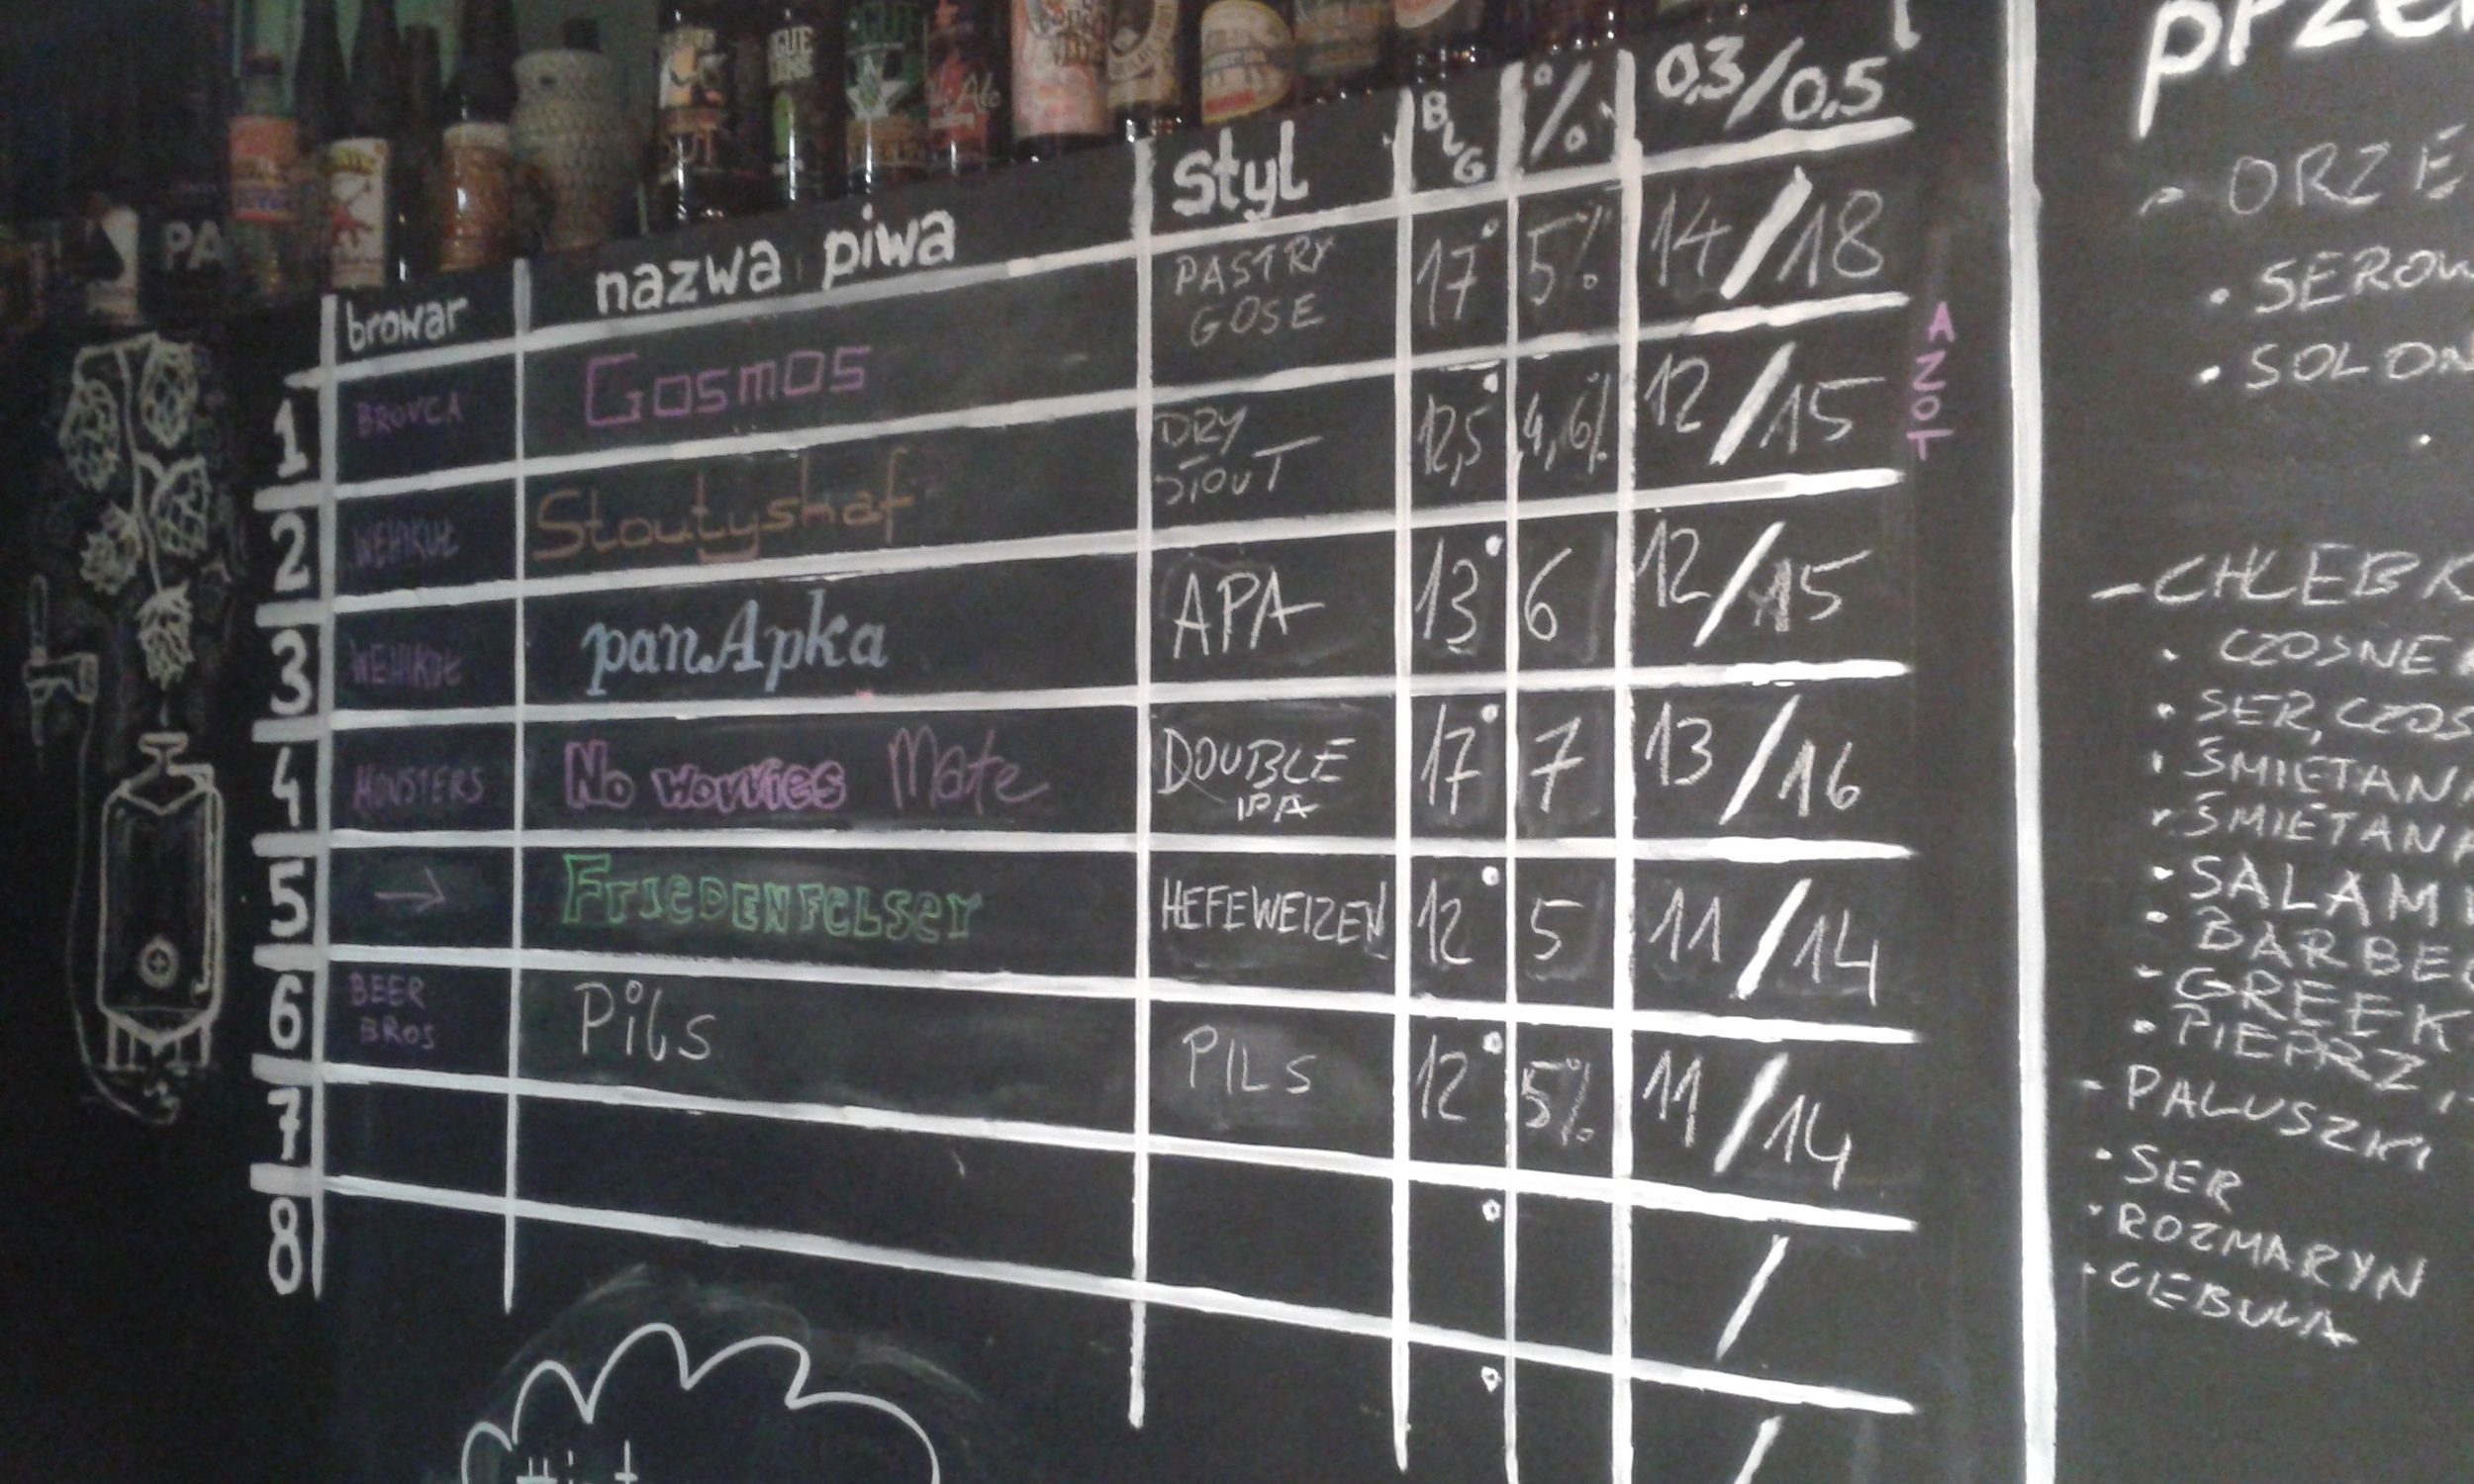 PA
browar nazwa piwa Styl BLG % 0,3/0,5
1 BROVCA Gosmos PASTRY GOSE 17° 5% 14/18
2 WEHIKUŁ Stoutyshaf DRY STOUT 12,5° 4,6% 12/15
AZOT
3 WEHIKUŁ panApka APA 13° 6 12/15
4 MONSTERS No worries Mate DOUBLE IPA 17° 7 13/16
5 → FRIEDENFELSER HEFEWEIZEN 12° 5 11/14
6 BEER BROS Pils PILS 12° 5% 11/14
7 ° /
8 ° /
prze
- ORZE
• SEROW
• SOLON
- CHLEBK
• CZOSNEK
• SER, CZOS
• ŚMIETANA
• ŚMIETANA
• SALAMI
• BARBEC
- GREEK
• PIEPRZ,
- PALUSZKI
• SER
• ROZMARYN
• CEBULA